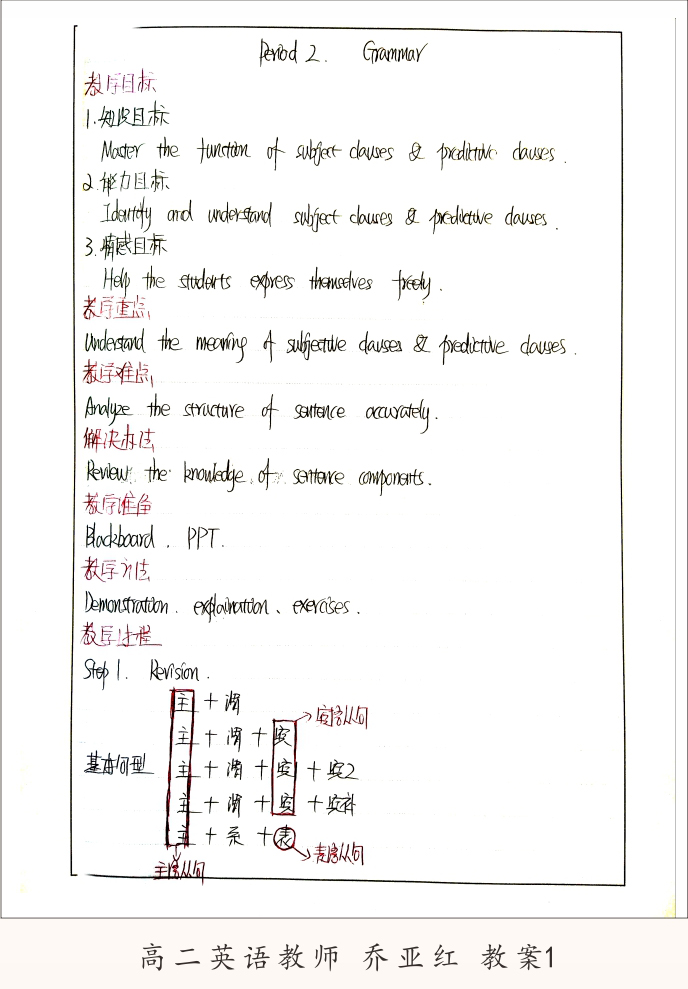 Period 2. Grammar
教学目标
1.知识目标
Master the function of subject clauses & predictive clauses.
2.能力目标
Identify and understand subject clauses & predictive clauses.
3.情感目标
Help the students express themselves freely.
教学重点
Understand the meaning of subjective clauses & predictive clauses.
教学难点
Analyze the structure of sentence accurately.
解决办法
Review the knowledge of sentence components.
教学准备
Blackboard. PPT.
教学方法
Demonstration. explaination、exercises.
教学过程
Step 1. Revision.
主 + 谓
宾语从句
主 + 谓 + 宾
基本句型 主 + 谓 + 宾 + 宾2
主 + 谓 + 宾 + 宾补
主 + 系 + 表
表语从句
主语从句
高二英语教师 乔亚红 教案1